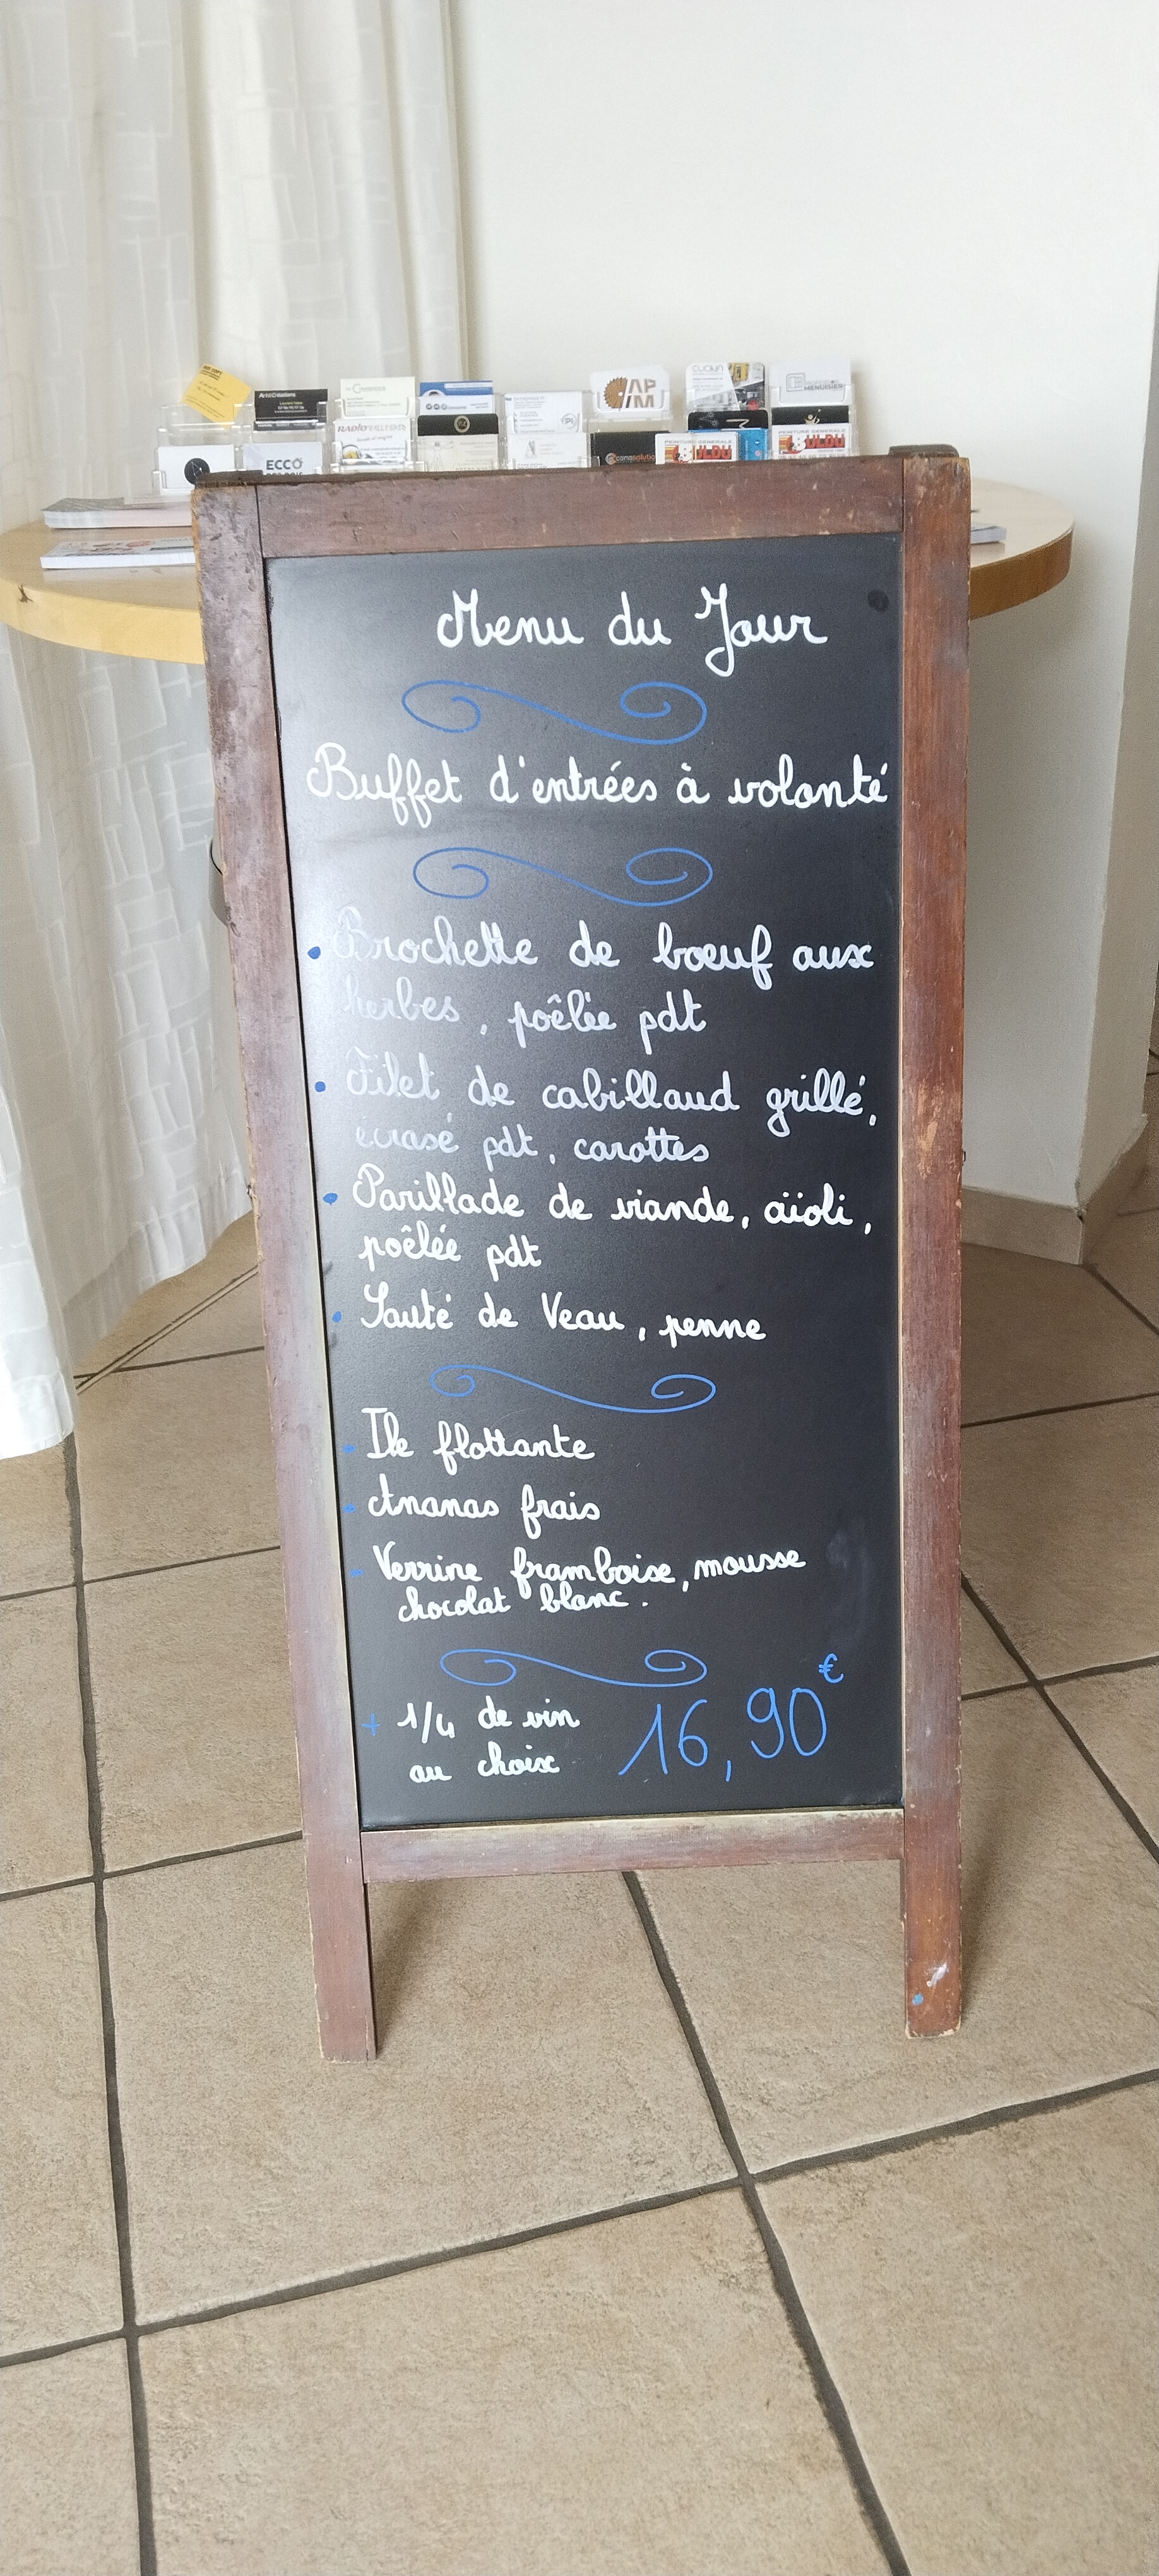 APM
MENUISIER
RADIO
ECCO
PEINTURE GENERALE
PEINTURE GENERALE
Menu du Jour
Buffet d'entrées à volonté
• Brochette de bœuf aux
herbes, poêlée pdt
• Filet de cabillaud grillé,
écrasé pdt, carottes
• Parillade de viande, aïoli,
poêlée pdt
• Sauté de Veau, penne
- Ile flottante
- Ananas frais
- Verrine framboise, mousse
chocolat blanc.
+ 1/4 de vin
au choix
16,90€